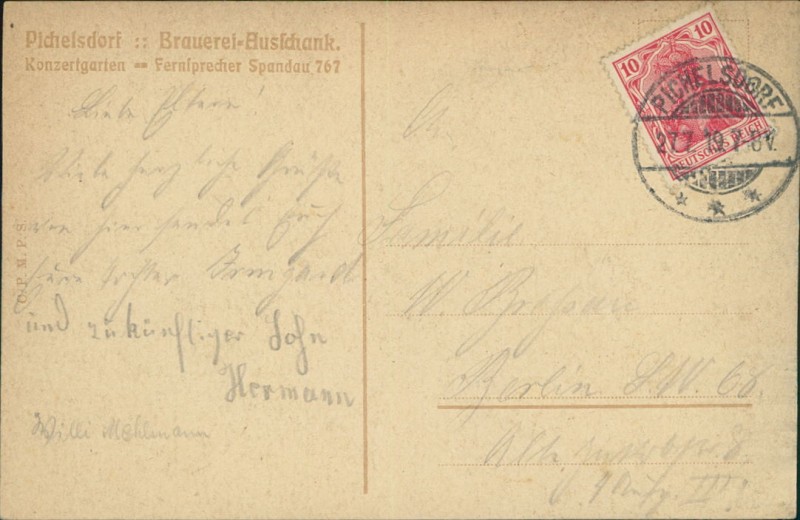 Pichelsdorf :: Brauerei-Ausschank.
Konzertgarten == Fernsprecher Spandau 767
Liebe Eltern!
Viele herzliche Grüße
von hier sendet Euch
Eure Tochter Irmgard
und zukünftiger Sohn
Hermann
Willi Mehlmann
O.P.M.P.S.
10 10
DEUTSCHES REICH
PICHELSDORF
27.7.19. 7-8V.
An
Familie
W.
Berlin S.W. 68.
Alte 8
4 Aufg. III